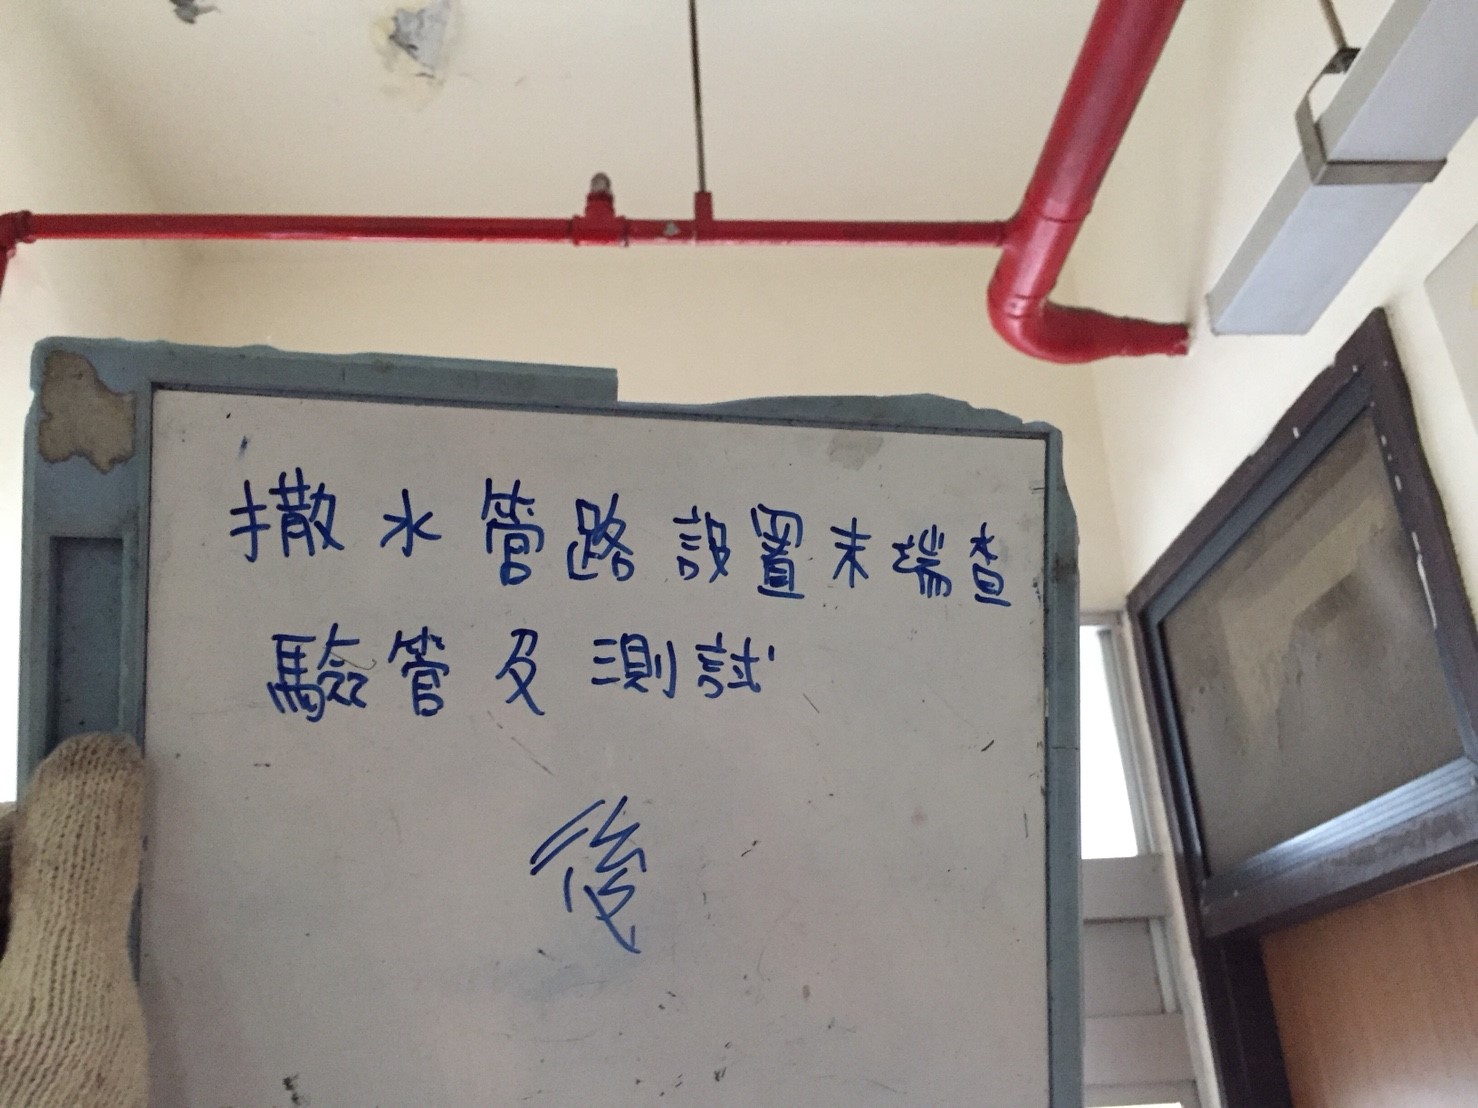 撒水管路設置末端查
驗管及測試
後